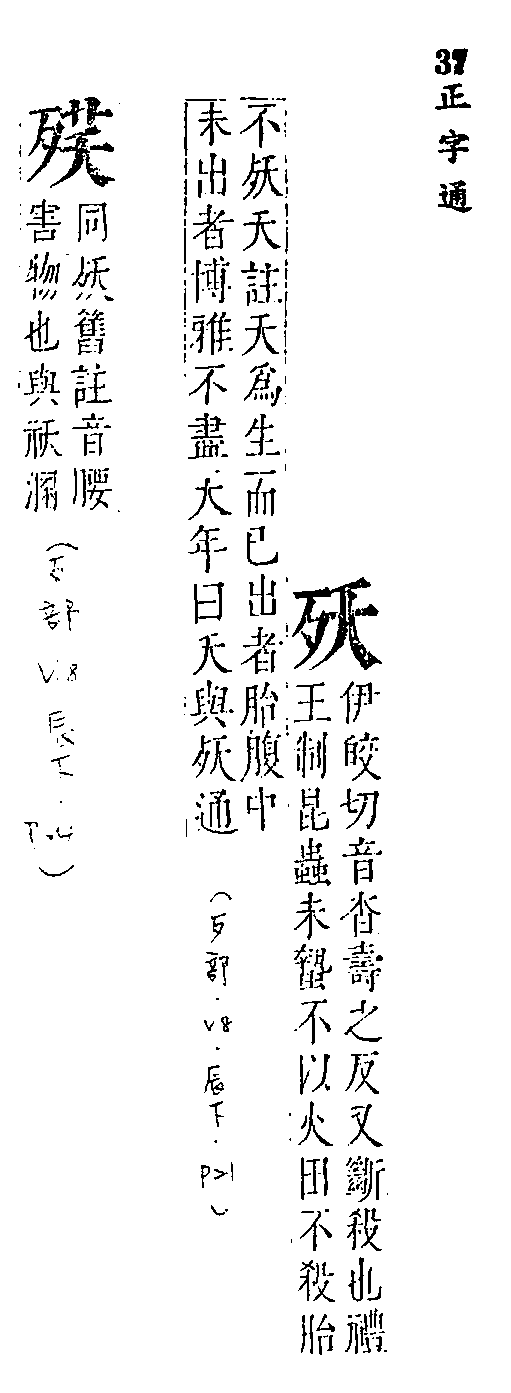 37 正字通
殀
伊皎切音杳壽之反又斷殺也禮
王制昆蟲未蟄不以火田不殺胎
不殀夭註夭爲生而已出者胎腹中
未出者博雅不盡大年曰夭與殀通
(歹部.V8.辰下.P21)
同殀舊註音腰
害物也與祅溷
(歹部V.8辰下.P.4)